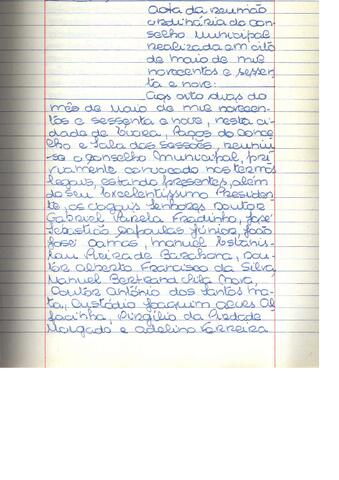 Acta da reunião
ordinária do con-
selho Municipal
realizada em oito
de maio de mil
novecentos e sessen-
ta e nove:
Aos oito dias do
mês de maio de mil novecen-
tos e sessenta e nove, nesta ci-
dade de Évora, Paços do Conce-
lho e sala das sessões, reuniu-
se o conselho Municipal, pré-
viamente convocado nos termos
legais, estando presentes, além
do seu Excelentíssimo Presiden-
te, os vogais senhores Doutor
Gabriel Varela Fradinho, José
Sebastião Júnior, João
José Damas, Manuel Estanis-
lau Vieira de Barahona, Dou-
tor Alberto Francisco da Silva,
Manuel Bertrand Mora,
Doutor António dos Santos Ma-
ta, Custódio Joaquim Neves Al-
facinha, Virgílio da Piedade
Morgado e Adelino Ferreira